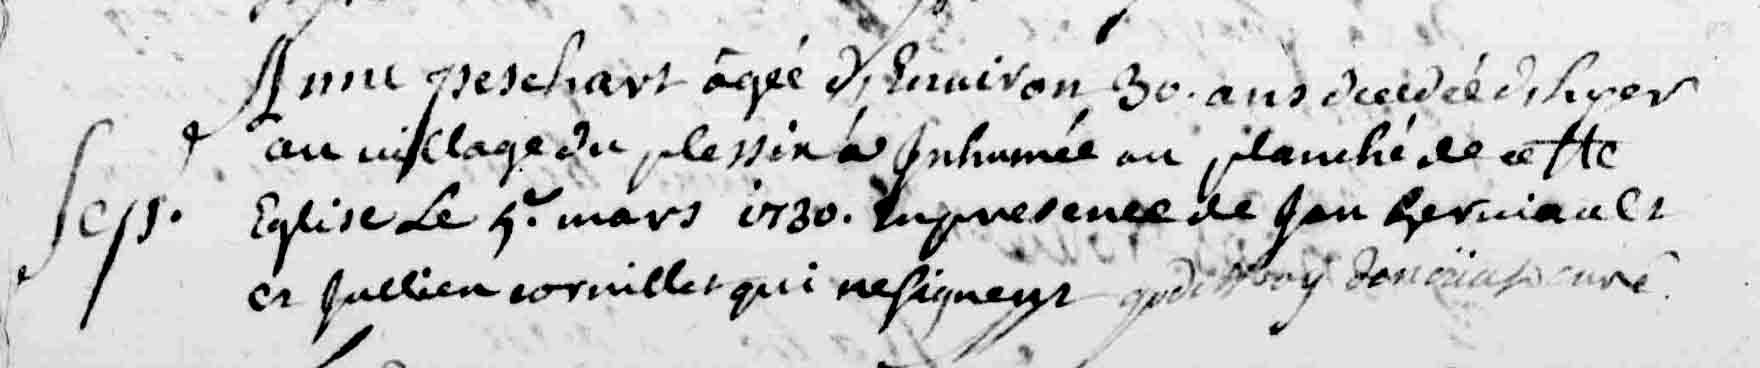 Anne peschart âgée d'Enuiron 30. ans decedée d'hyer
au uillage du plessix a Inhumée au planché de cette
Sep. Eglise Le 5e. mars 1730. En presence de Jan heruiault
et Jullien cornillet qui ne signent curé